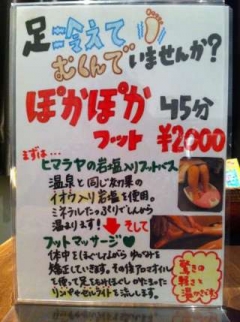 足冷えて
むくんで
いませんか?
ぽかぽか 45分
フット ¥2000
まずは…
ヒマラヤの岩塩入りフットバス
温泉と同じ効果の
イオウ入り岩塩を使用。
ミネルたっぷりでしんから
温まります! そして
フットマッサージ♥
体中をほぐしながら ゆがみを
矯正していきます。その後アロマオイル
を使って足をもみほぐしかたまった
リンパやセルライトを流します。
驚きの
軽さと
温かさです